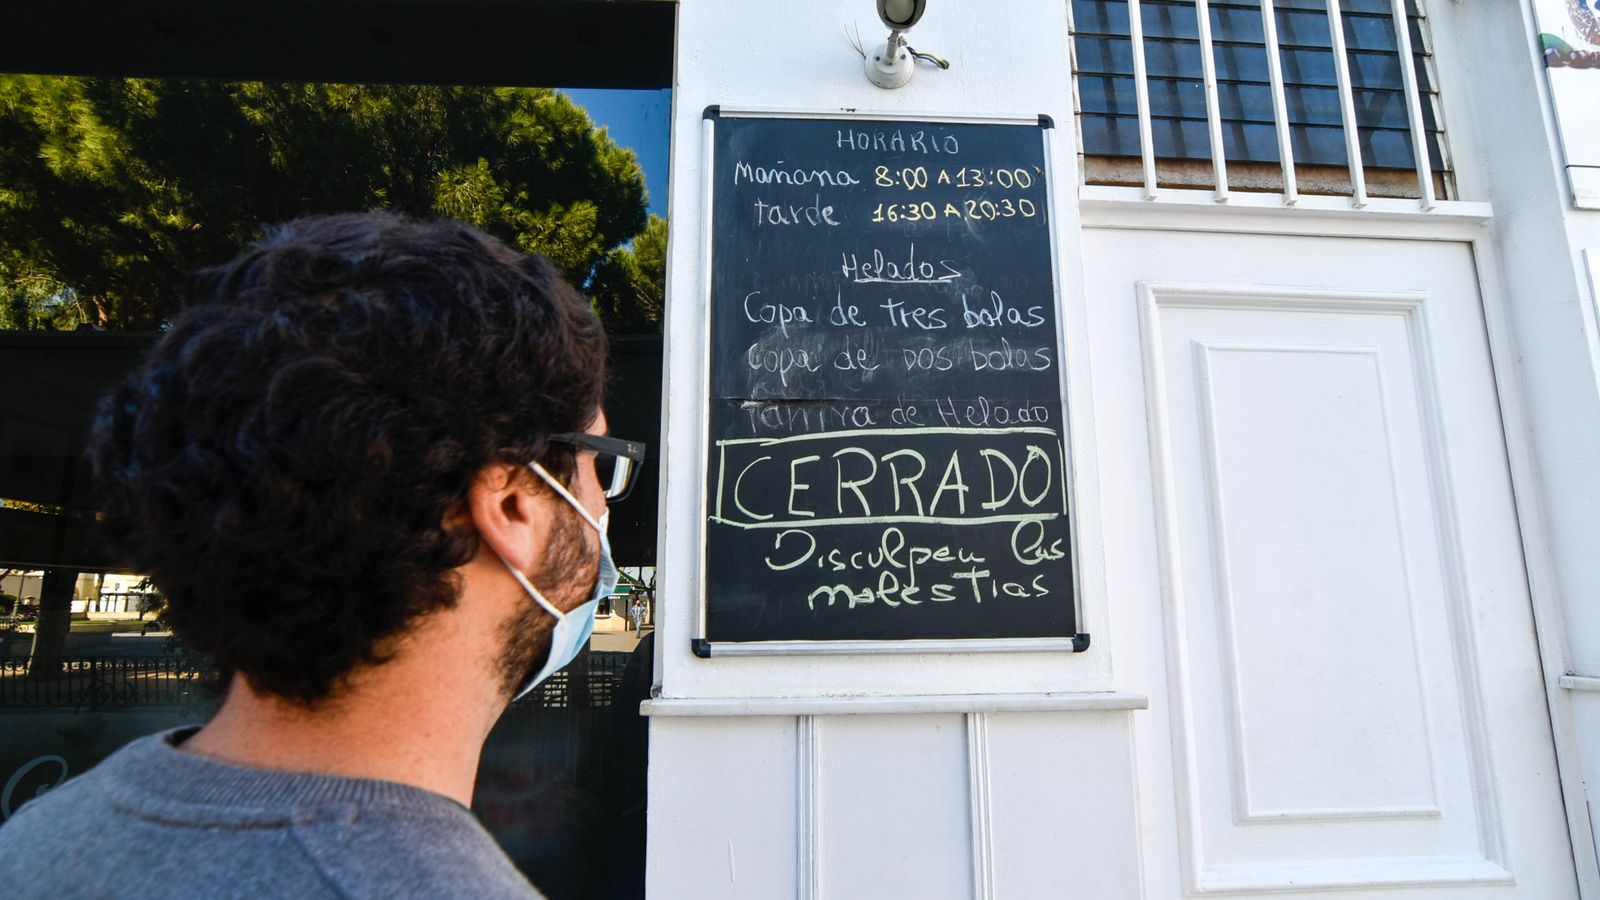 HORARIO
Mañana 8:00 A 13:00
tarde 16:30 A 20:30
Helados
Copa de tres bolas
Copa de DOS bolas
de Helado
CERRADO
Disculpen las
molestias